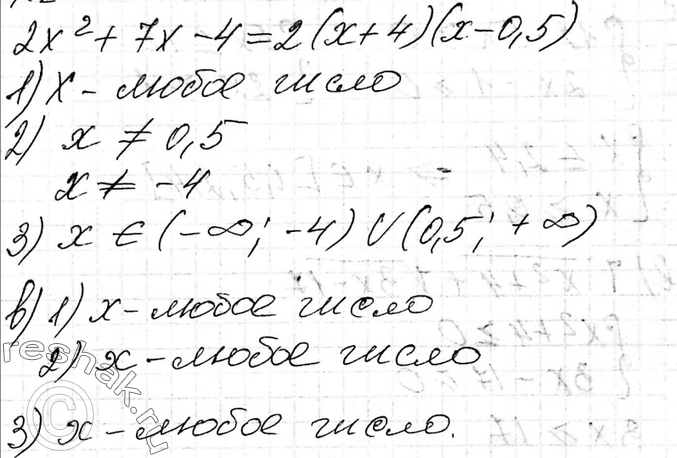 2x² + 7x - 4 = 2(x+4)(x-0,5)
1) x - любое число
2) x ≠ 0,5
x ≠ -4
3) x ∈ (-∞; -4) ∪ (0,5; +∞)
в) 1) x - любое число
2) x - любое число
3) x - любое число.
reshak.ru